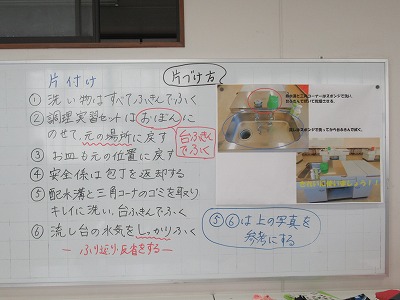 片付け
片づけ方
① 洗い物はすべてふきんでふく
② 調理実習セットはおぼんに
のせて、元の場所に戻す
台ふきん
でふく
③ お皿も元の位置に戻す
④ 安全係は包丁を返却する
⑤ 配水溝と三角コーナのゴミを取り
キレイに洗い、台ふきんでふく
⑥ 流し台の水気をしっかりふく
ふり返り・反省をする
⑤⑥は上の写真を
参考にする